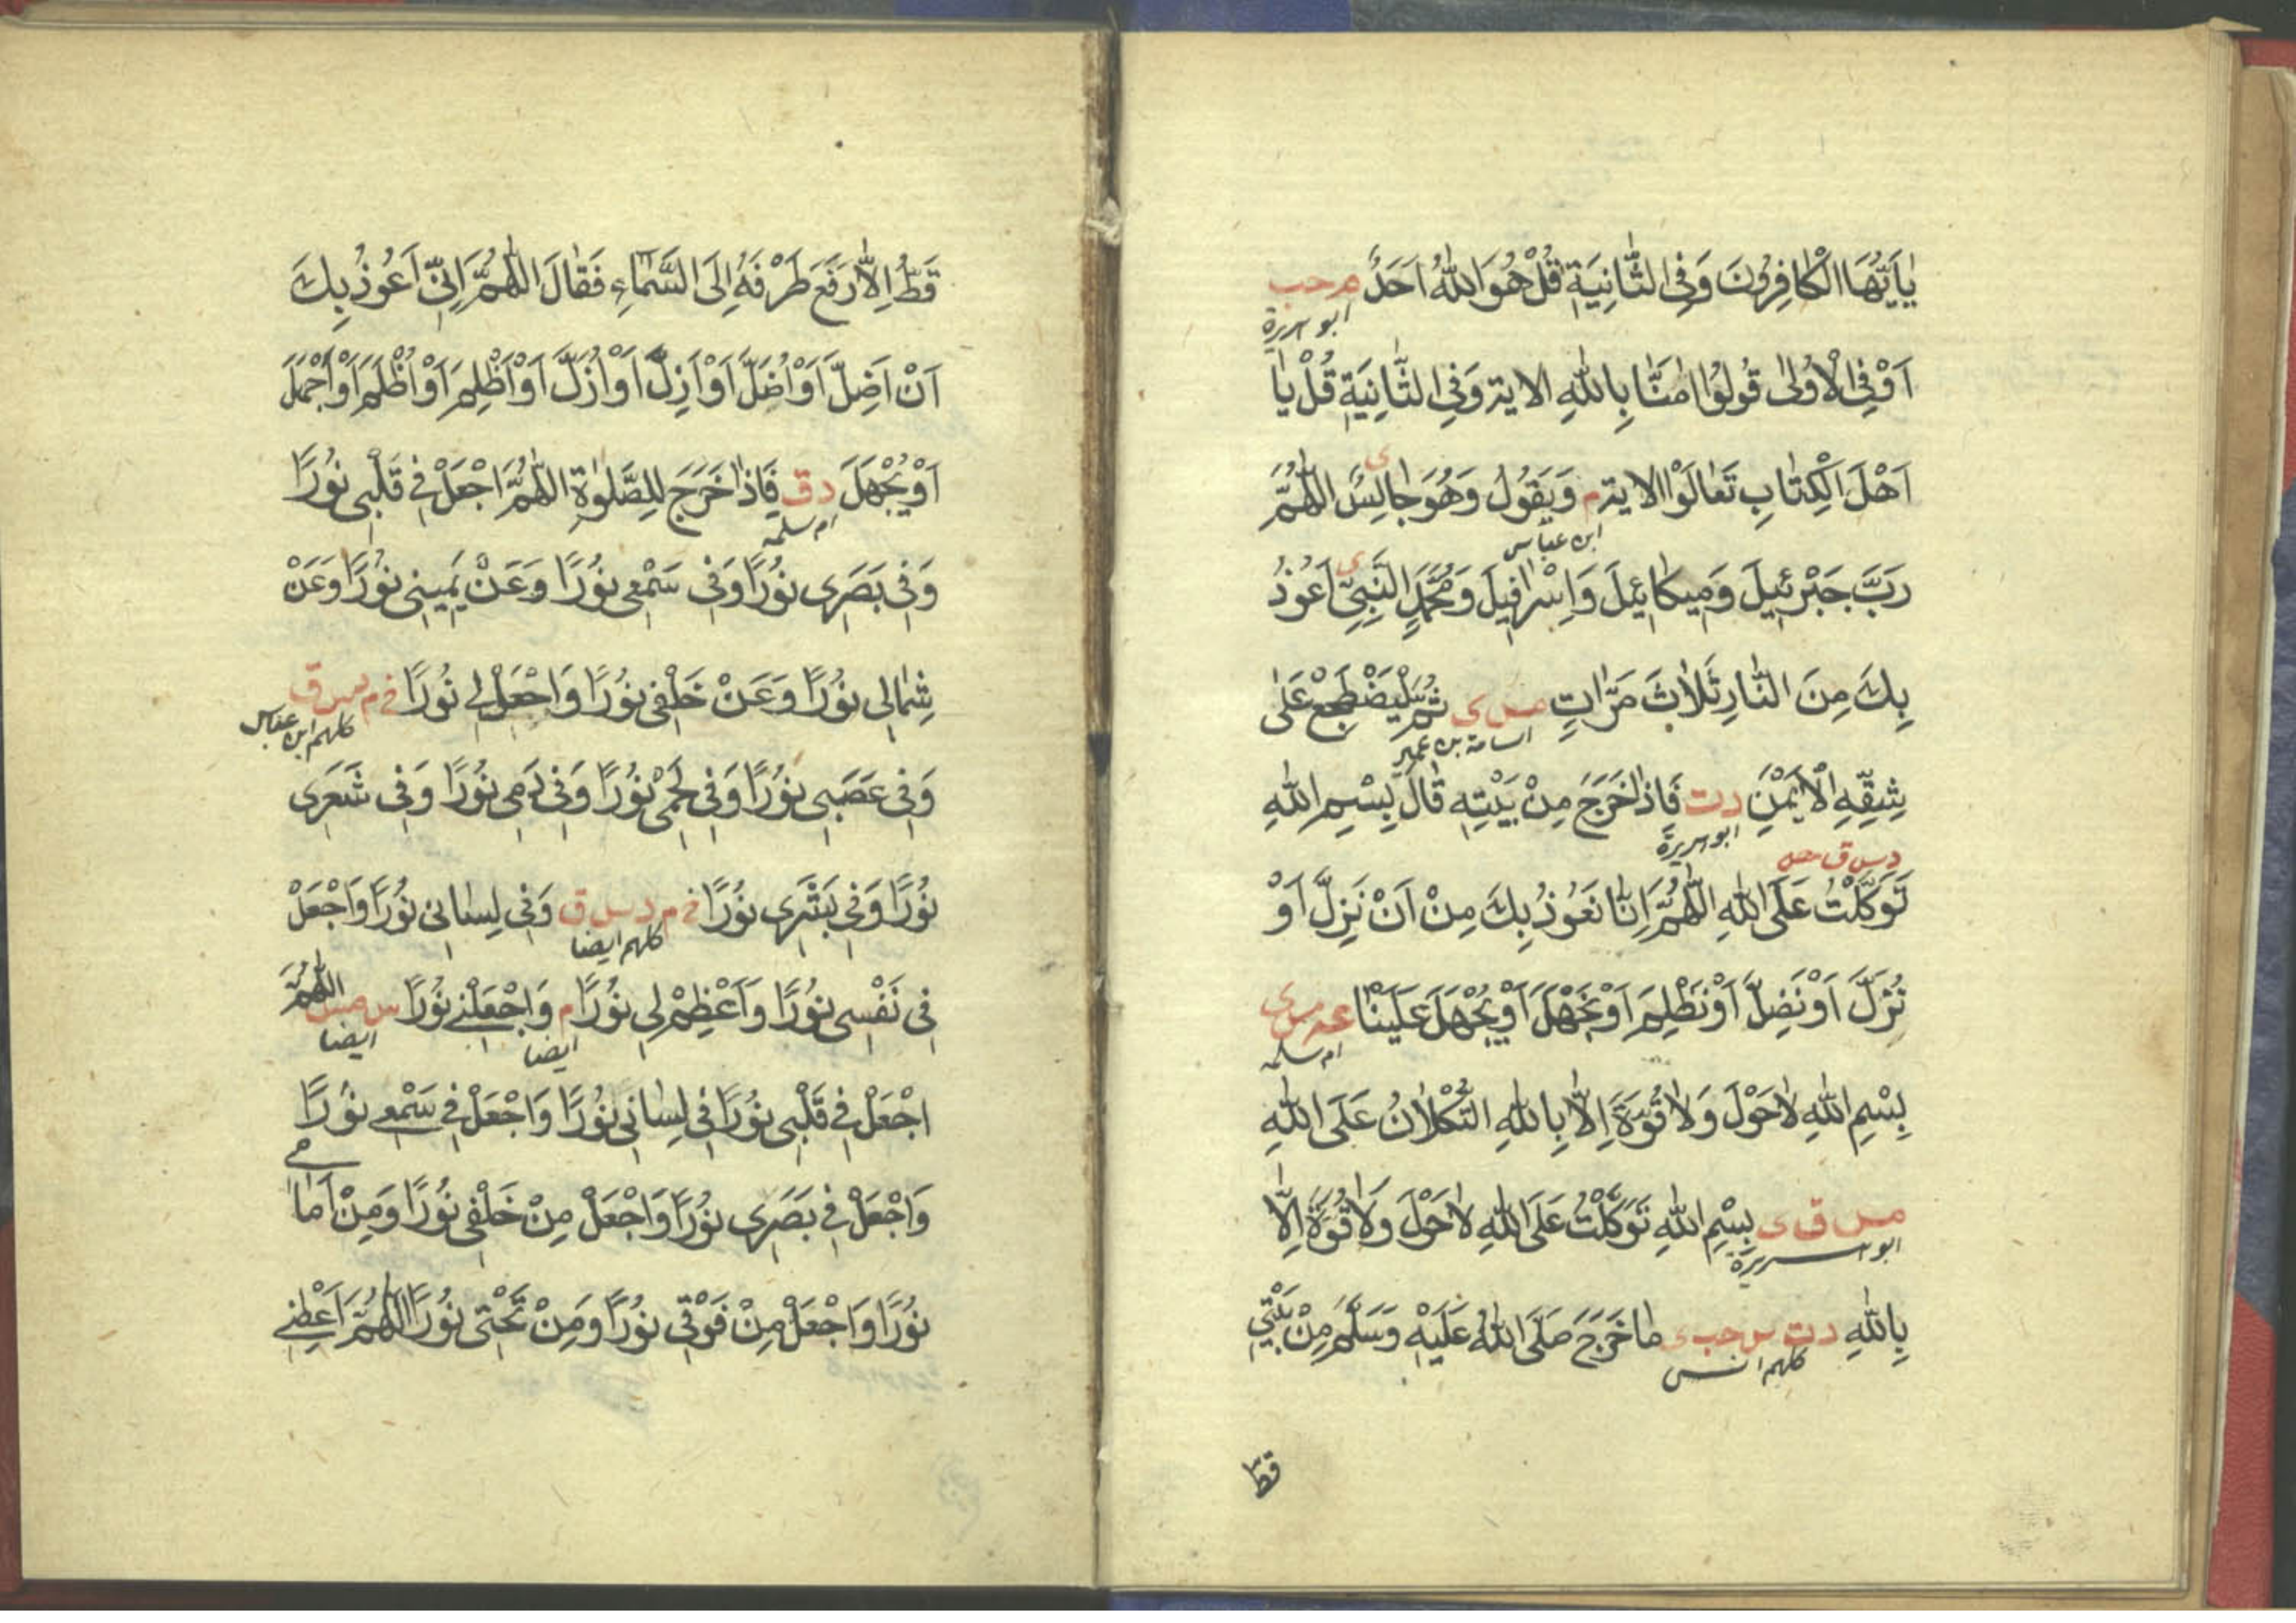 يٰاَيُّهَا الْكَافِرُونَ وَفِى الثَّانِيَةِ قُلْ هُوَ اللّٰهُ اَحَدٌ م حب
ابو هريرة
اَوْ فِى الْاُولٰى قُولُوا اٰمَنَّا بِاللّٰهِ الاية وَفِى الثَّانِيَةِ قُلْ يٰا
اَهْلَ الْكِتَابِ تَعَالَوْا الاية م وَيَقُولُ وَهُوَ جَالِسٌ اللّٰهُمَّ
ى
ابن عباس
رَبَّ جَبْرَئِيلَ وَمِيكَائِيلَ وَاِسْرَافِيلَ وَمُحَمَّدٍ النَّبِىِّ اَعُوذُ
ى
بِكَ مِنَ النَّارِ ثَلَاثَ مَرَّاتٍ مس ى ثُمَّ لْيَضْطَجِعْ عَلٰى
اسامة بن عمير
شِقِّهِ الْاَيْمَنِ د ت فَاِذَا خَرَجَ مِنْ بَيْتِهِ قَالَ بِسْمِ اللّٰهِ
ابو هريرة
د س ق مس
تَوَكَّلْتُ عَلَى اللّٰهِ اللّٰهُمَّ اِنَّا نَعُوذُ بِكَ مِنْ اَنْ نَزِلَّ اَوْ
نُزَلَّ اَوْ نَضِلَّ اَوْ نَظْلِمَ اَوْ نَجْهَلَ اَوْ يُجْهَلَ عَلَيْنَا عه مس ى
ام سلمه
بِسْمِ اللّٰهِ لَا حَوْلَ وَلَا قُوَّةَ اِلَّا بِاللّٰهِ التُّكْلَانُ عَلَى اللّٰهِ
مس ق ى بِسْمِ اللّٰهِ تَوَكَّلْتُ عَلَى اللّٰهِ لَا حَوْلَ وَلَا قُوَّةَ اِلَّا
ابو هريرة
بِاللّٰهِ د ت س حب ى مَا خَرَجَ صَلَّى اللّٰهُ عَلَيْهِ وَسَلَّمَ مِنْ بَيْتِي
كلهم انس
قط
قَطُّ اِلَّا رَفَعَ طَرْفَهُ اِلَى السَّمَاءِ فَقَالَ اللّٰهُمَّ اِنِّى اَعُوذُ بِكَ
اَنْ اَضِلَّ اَوْ اُضَلَّ اَوْ اَزِلَّ اَوْ اُزَلَّ اَوْ اَظْلِمَ اَوْ اُظْلَمَ اَوْ اَجْهَلَ
اَوْ يُجْهَلَ د ق فَاِذَا خَرَجَ لِلصَّلٰوةِ اللّٰهُمَّ اجْعَلْ فِى قَلْبِى نُورًا
ام سلمه
وَفِى بَصَرِى نُورًا وَفِى سَمْعِى نُورًا وَعَنْ يَمِينِى نُورًا وَعَنْ
شِمَالِى نُورًا وَعَنْ خَلْفِى نُورًا وَاجْعَلْ لِى نُورًا خ م س ق
كلهم ابن عباس
وَفِى عَصَبِى نُورًا وَفِى لَحْمِى نُورًا وَفِى دَمِى نُورًا وَفِى شَعَرِى
نُورًا وَفِى بَشَرِى نُورًا خ م د س ق وَفِى لِسَانِى نُورًا وَاجْعَلْ
كلهم ايضا
فِى نَفْسِى نُورًا وَاَعْظِمْ لِى نُورًا م وَاجْعَلْنِى نُورًا س مس اللّٰهُمَّ
ايضا ايضا
اجْعَلْ فِى قَلْبِى نُورًا فِى لِسَانِى نُورًا وَاجْعَلْ فِى سَمْعِى نُورًا
وَاجْعَلْ فِى بَصَرِى نُورًا وَاجْعَلْ مِنْ خَلْفِى نُورًا وَمِنْ اَمَامِى
نُورًا وَاجْعَلْ مِنْ فَوْقِى نُورًا وَمِنْ تَحْتِى نُورًا اللّٰهُمَّ اَعْطِنِى